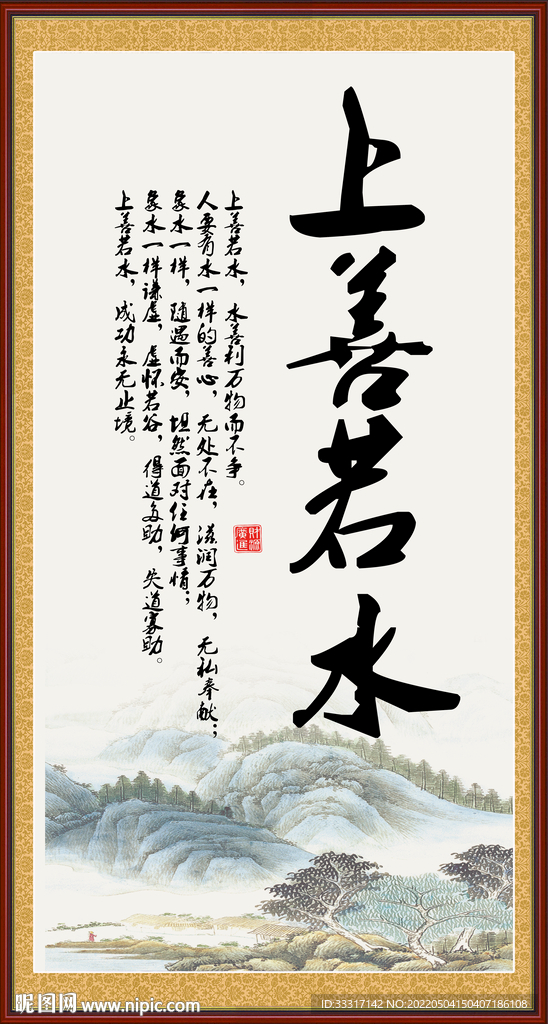 上善若水
上善若水，水善利万物而不争。
人要有水一样的善心，无处不在，滋润万物，无私奉献；
象水一样，随遇而安，坦然面对任何事情；
象水一样谦虚，虚怀若谷，得道多助，失道寡助。
上善若水，成功永无止境。
昵图网 www.nipic.com
ID:33317142 NO:20220504150407186108